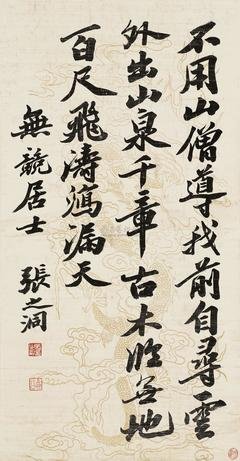 不用山僧導我前自尋雲
外出山泉千章古木臨無地
百尺飛濤瀉漏天
無競居士 張之洞